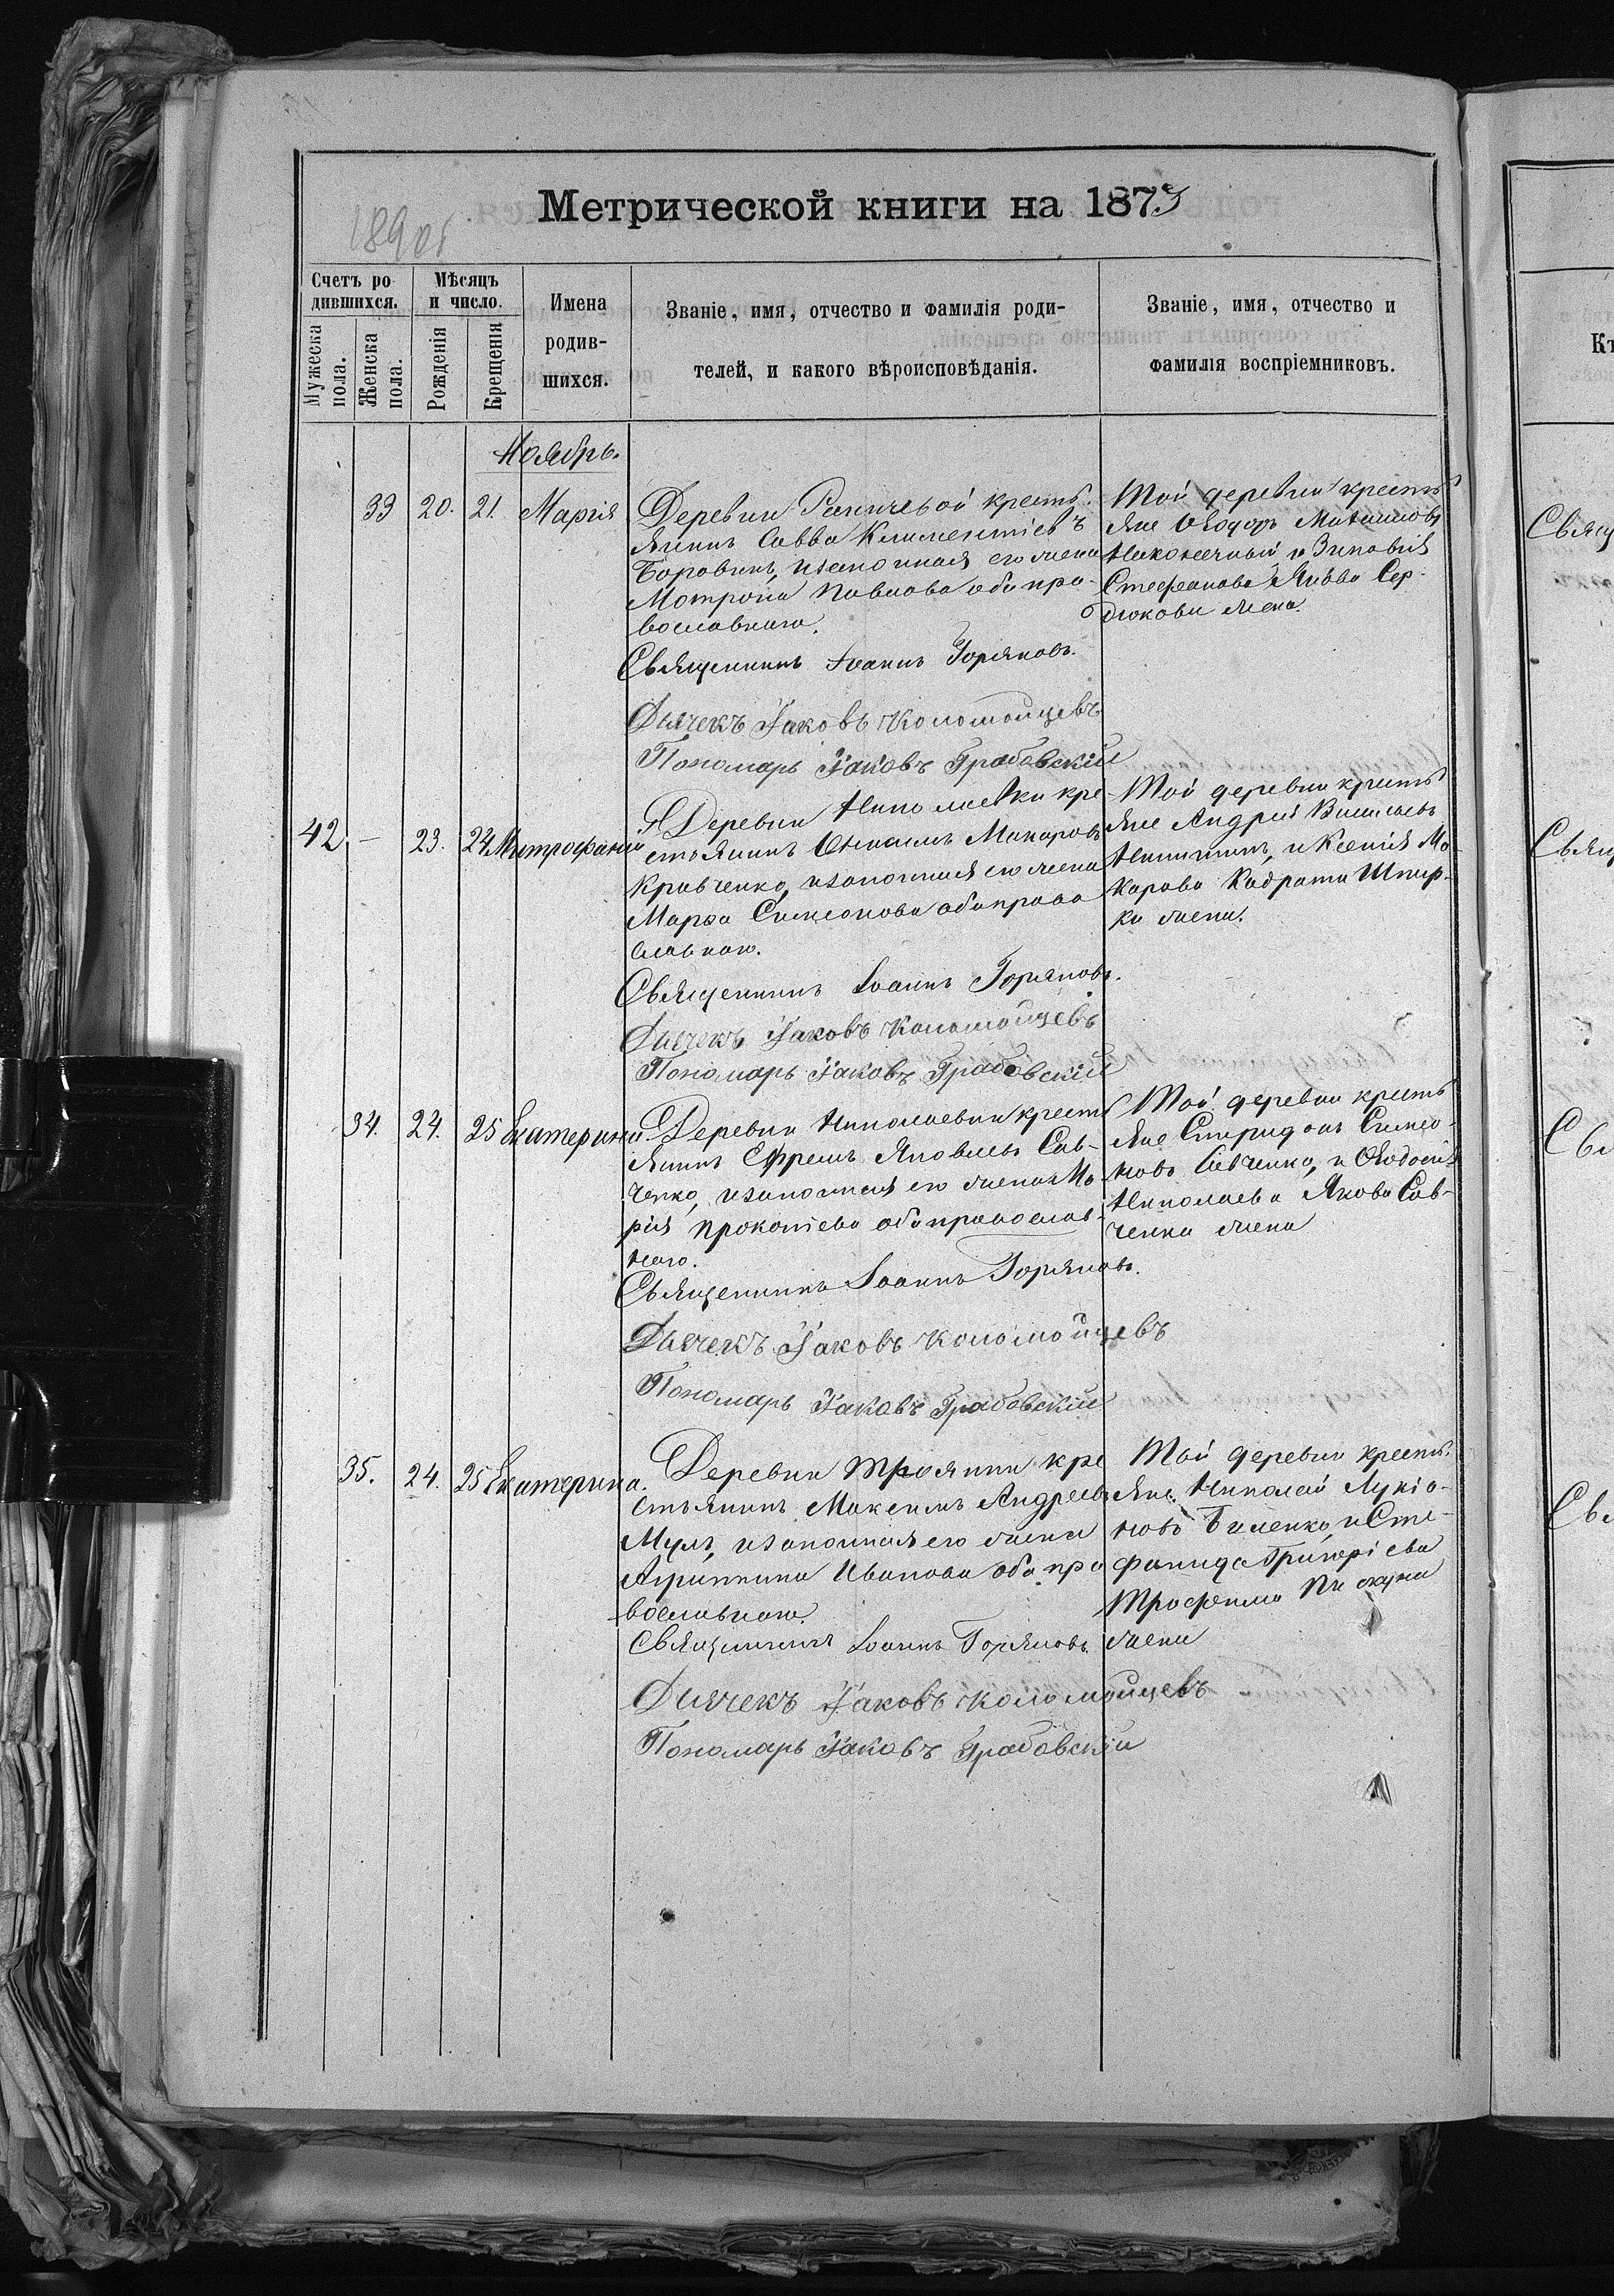 Метрической книги на 1873
Счетъ ро-
дившихся.
Мужеска пола.
Женска пола.
Мѣсяцъ
и число.
Рожденія
Крещенія
Имена
родив-
шихся.
Званіе, имя, отчество и фамилія роди-
телей, и какого вѣроисповѣданія.
Званіе, имя, отчество и
фамилія воспріемниковъ.
Ноябрь.
33 20. 21. Марія
Деревни кресть-
янинъ Савва Климентіевъ
Боровикъ, изаконная его жена
Мотрона Павлова оба пра-
вославнаго.
Священникъ Іоаннъ Горяновъ.
Дьячекъ Іаковъ Коломойцевъ
Пономарь Іаковъ Грабовскій
Той деревни кресть
яне Ѳеодоръ
и Зиновія
Стефанова Сер-
дюкова жена.
42. — 23. 24 Митрофаній
Деревни Николаевки кре-
стьянинъ Макаровъ
Кравченко, изаконная его жена
Марѳа Симеонова оба право
славнаго.
Священникъ Іоаннъ Горяновъ.
Дьячекъ Іаковъ Коломойцевъ
Пономарь Іаковъ Грабовскій
Той деревни кресть
яне Андрей Васильевъ
Никитинъ, и Ксенія Ма-
карова Кодрата Шпир-
ка жена.
34. 24. 25 Екатерина
Деревни Николаевки кресть
янинъ Ефремъ Яковлевъ Сав-
ченко, изаконная его жена Ма-
рія Прокопіева оба православ-
наго.
Священникъ Іоаннъ Горяновъ.
Дьячекъ Іаковъ Коломойцевъ
Пономарь Іаковъ Грабовскій
Той деревни кресть
яне Спиридонъ Симео-
новъ Савченко, и Ѳеодосія
Николаева Якова Сав-
ченка жена
35. 24. 25 Екатерина.
Деревни Трояники кре
стьянинъ Максимъ Андреевъ
Муль, изаконная его жена
Агрипина Иванова оба пра
вославнаго.
Священникъ Іоаннъ Горяновъ.
Дьячекъ Іаковъ Коломойцевъ
Пономарь Іаковъ Грабовскій
Той деревни кресть-
яне. Николай Лукіа-
новъ Биленко, и Сте-
фанида Григоріева
Трофима
жена